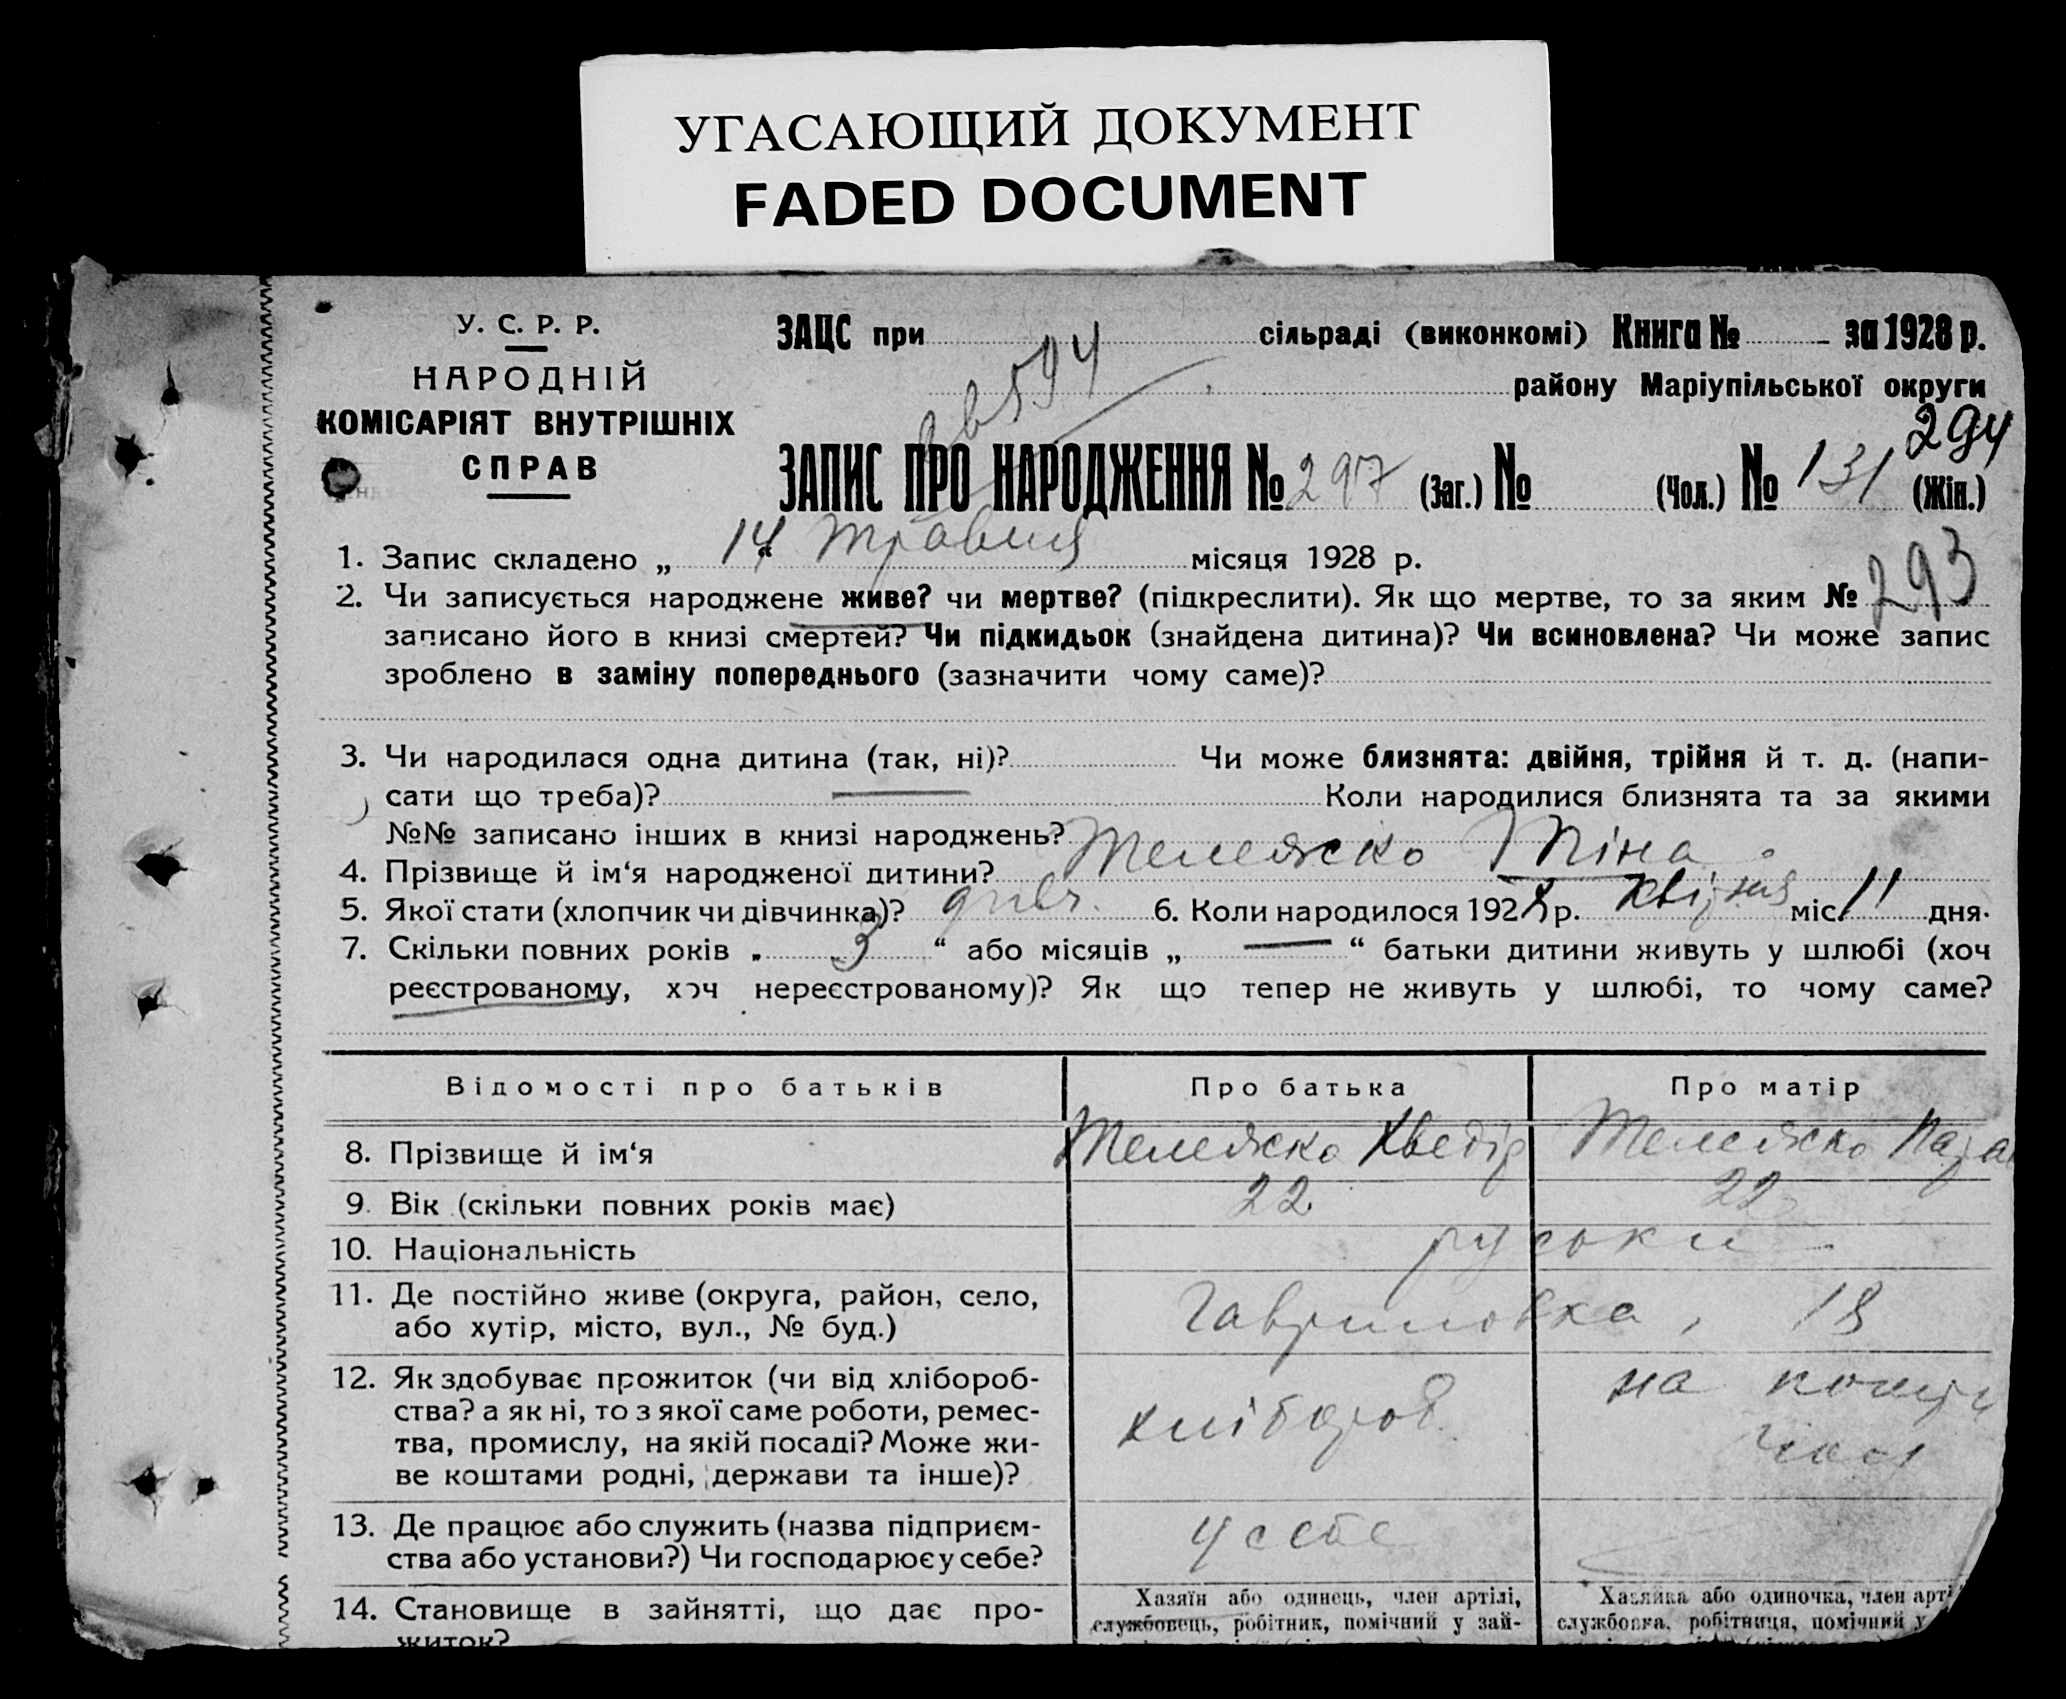 УГАСАЮЩИЙ ДОКУМЕНТ
FADED DOCUMENT
У. С. Р. Р.
НАРОДНІЙ
КОМІСАРІЯТ ВНУТРІШНІХ
СПРАВ
ЗАЦС при сільраді (виконкомі) Книга № за 1928 р.
району Маріупільської округи
594
294
ЗАПИС ПРО НАРОДЖЕННЯ № 297 (Заг.) № (Чол.) № 131 (Жін.)
1. Запис складено „ 14 " травня місяця 1928 р.
293
2. Чи записується народжене живе? чи мертве? (підкреслити). Як що мертве, то за яким №
записано його в книзі смертей? Чи підкидьок (знайдена дитина)? Чи всиновлена? Чи може запис
зроблено в заміну попереднього (зазначити чому саме)?
3. Чи народилася одна дитина (так, ні)? Чи може близнята: двійня, трійня й т. д. (напи-
сати що треба)? Коли народилися близнята та за якими
№№ записано інших в книзі народжень?
4. Прізвище й ім‘я народженої дитини? Телеяско Ніна
5. Якої стати (хлопчик чи дівчинка)? дівч. 6. Коли народилося 1928 р. квітня міс. 11 дня.
7. Скільки повних років „ 3 “ або місяців „ — “ батьки дитини живуть у шлюбі (хоч
реєстрованому, хоч нереєстрованому)? Як що тепер не живуть у шлюбі, то чому саме?
Відомості про батьків Про батька Про матір
8. Прізвище й ім‘я Телеяско Хведір Телеяско
9. Вік (скільки повних років має) 22 22
10. Національність руськи
11. Де постійно живе (округа, район, село,
або хутір, місто, вул., № буд.) Гавриловка, 18
12. Як здобуває прожиток (чи від хлібороб-
ства? а як ні, то з якої саме роботи, ремес-
тва, промислу, на якій посаді? Може жи-
ве коштами родні, держави та інше)? хлібороб на
13. Де працює або служить (назва підприєм-
ства або установи?) Чи господарює у себе? у себе
14. Становище в зайнятті, що дає про-
житок?
Хазяїн або одинець, член артілі,
службовець, робітник, помічний у зай-
Хазяйка або одиночка, член арті
службовка, робітниця, помічний у